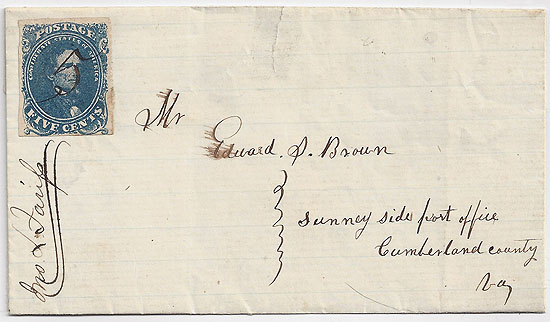 POSTAGE
CONFEDERATE STATES OF AMERICA
FIVE CENTS
Mr
Edward. S. Brown
Sunney side post office
Cumberland county
Va